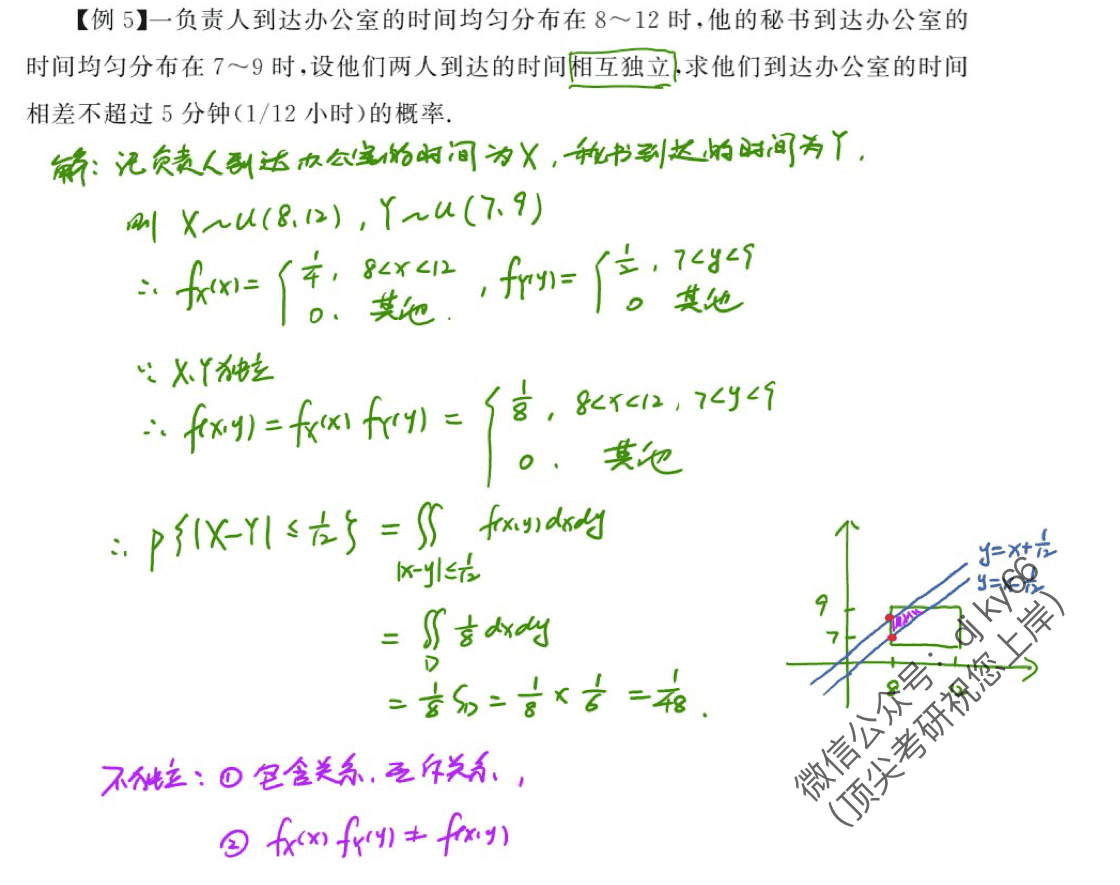 【例 5】一负责人到达办公室的时间均匀分布在 8～12 时,他的秘书到达办公室的
时间均匀分布在 7～9 时,设他们两人到达的时间相互独立,求他们到达办公室的时间
相差不超过 5 分钟(1/12 小时)的概率.
解: 记负责人到达办公室的时间为X, 秘书到达的时间为Y,
则 X~U(8,12), Y~U(7,9)
∴ fX(x)= { 1/4, 8<x<12 0, 其他. , fY(y)= { 1/2, 7<y<9 0 其他
∵ X,Y独立
∴ f(x,y) = fX(x) fY(y) = { 1/8, 8<x<12, 7<y<9 0, 其他
∴ P{|X-Y| ≤ 1/12} = ∬ f(x,y)dxdy
|x-y|≤1/12
= ∬ 1/8 dxdy
D
= 1/8 S_D = 1/8 × 1/6 = 1/48.
y=x+1/12
9
7
8
微信公众号: djky66
(顶尖考研祝您上岸)
不独立: ① 包含关系, 互斥关系,
② fX(x) fY(y) ≠ f(x,y)